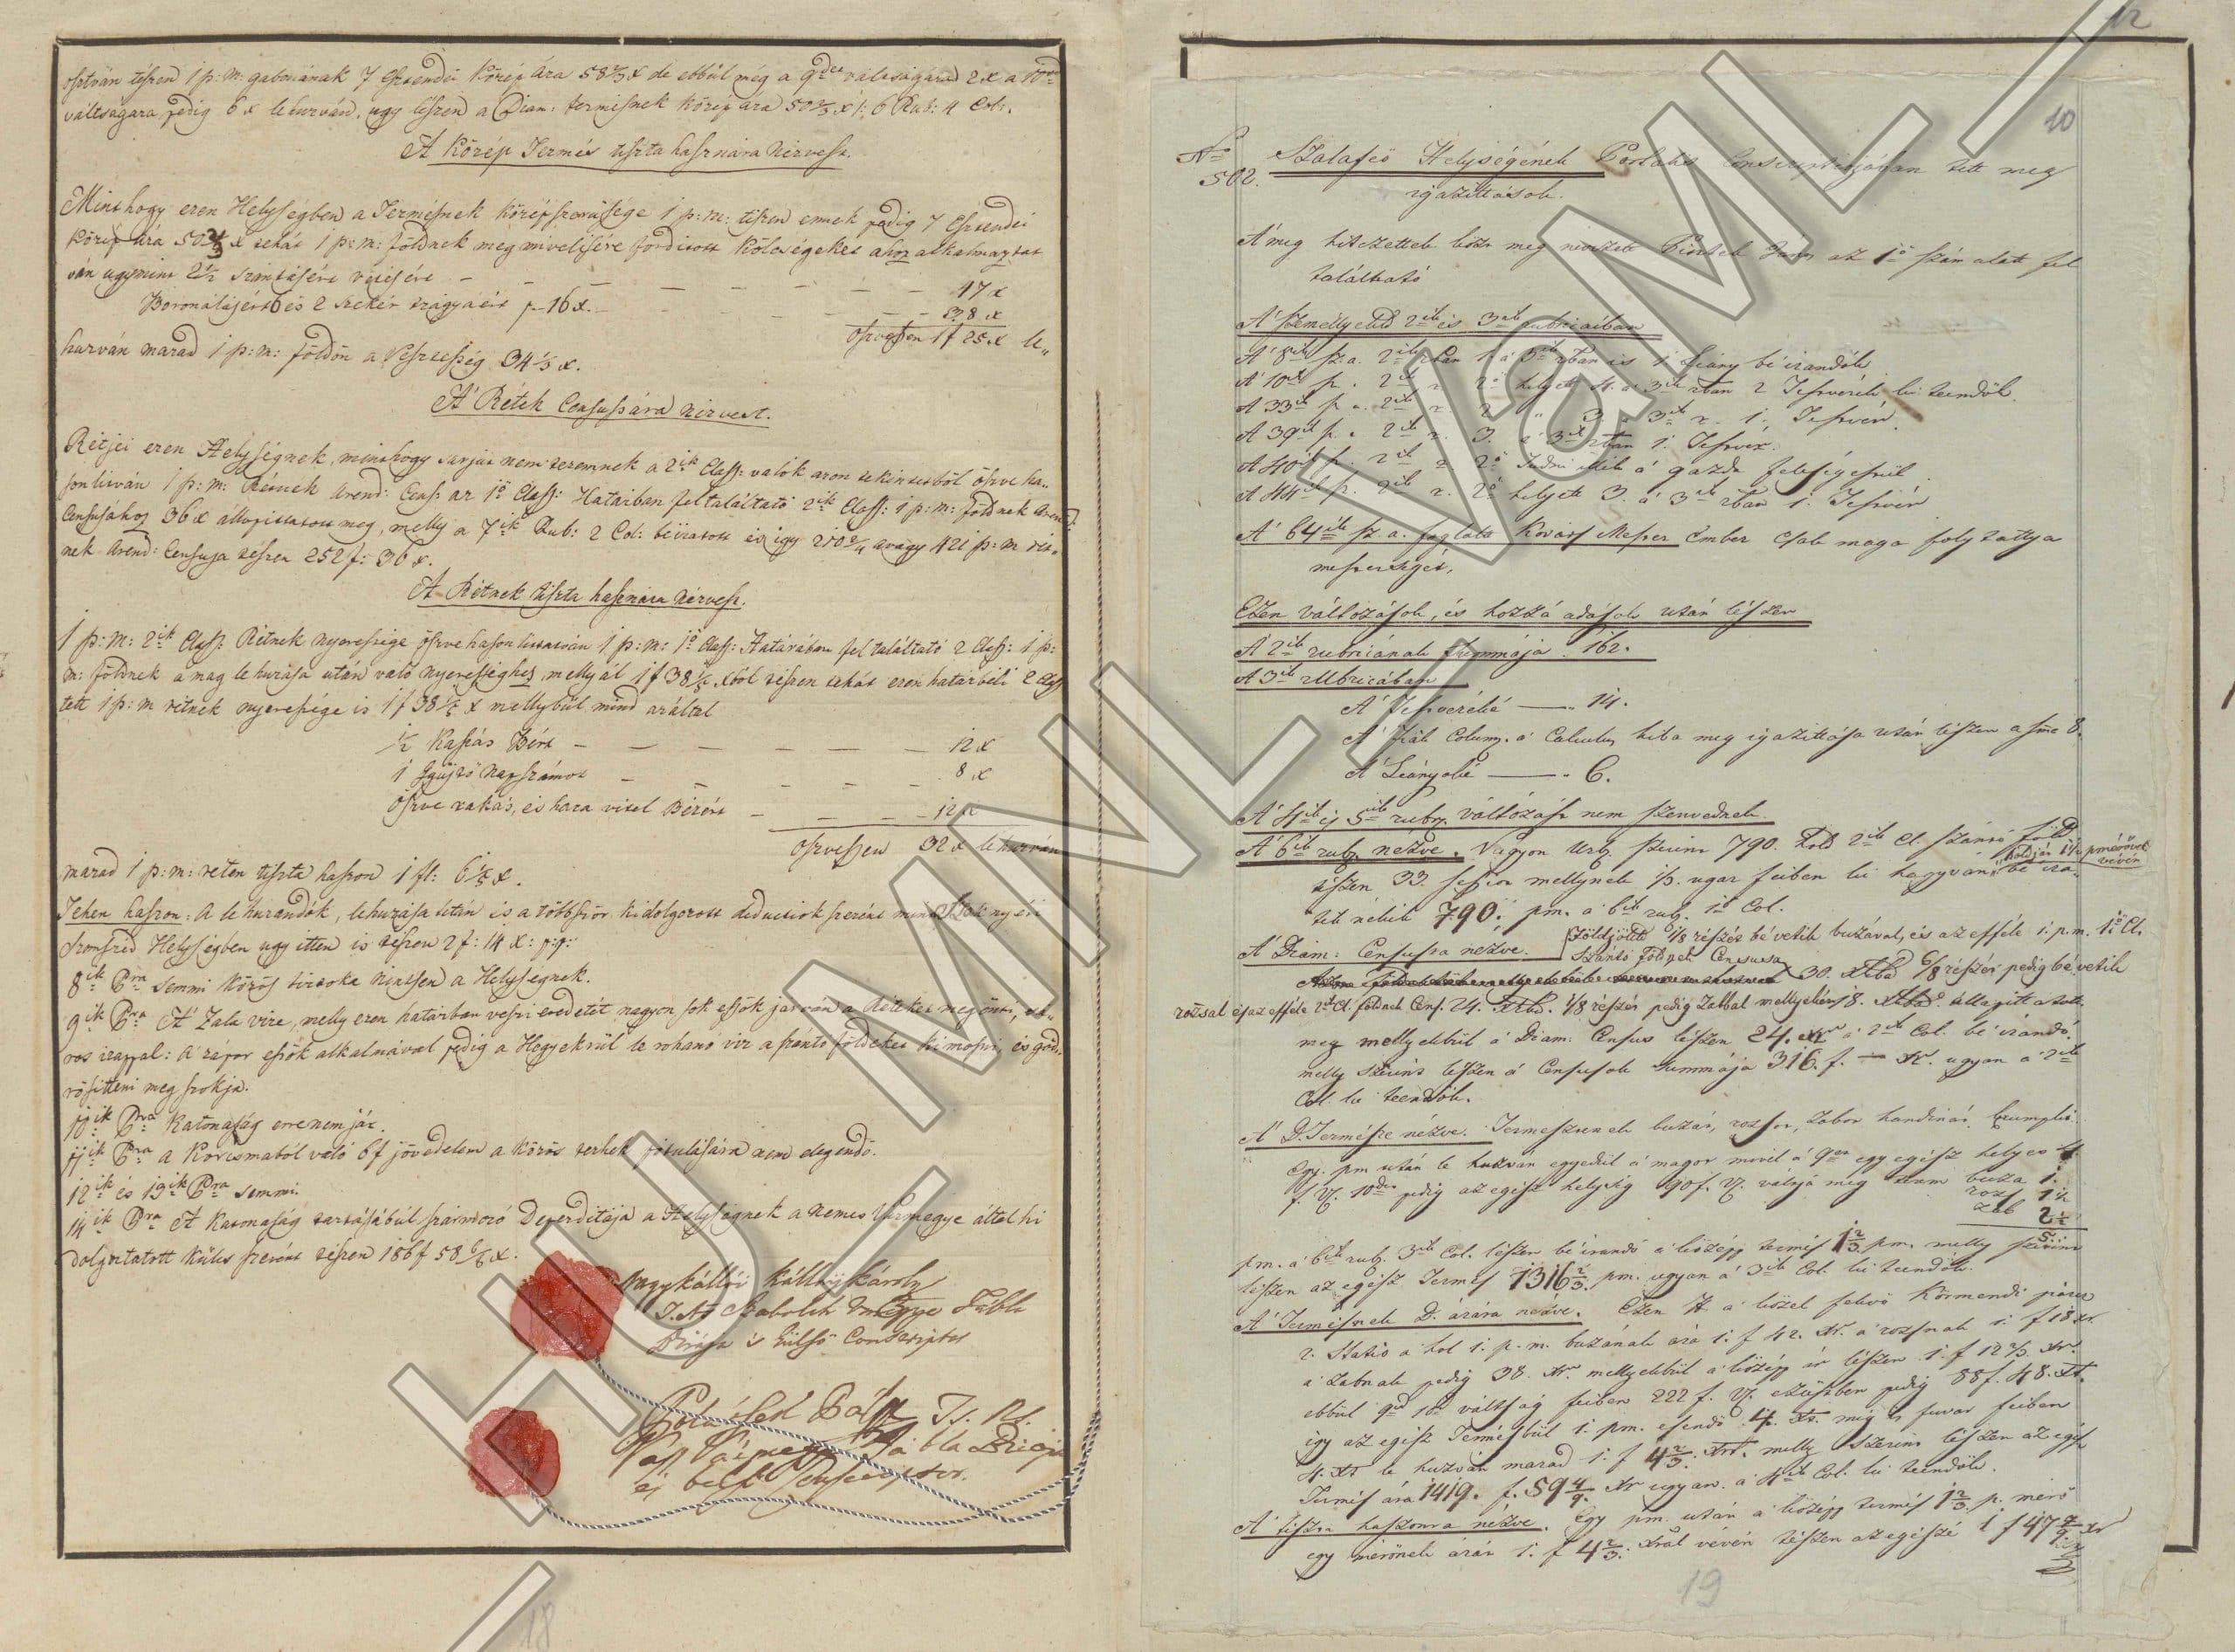 osztván tészen 1 p: m: gabonának 7 Esztendei Közép Ára 58 2/3 x de ebbül még a 9ed váltságára 2 x a 10ed
váltságára pedig 6 x lehuzván, ugy lészen a Diam: termésnek közép ára 50 2/3 x 1: 6 Rub: 4 Col:.
A Közép Termés tiszta hasznára nézvest.
Minthogy ezen Helységben a Termésnek középszerüsége 1 p: m: tészen ennek pedig 7 Esztendei
Közép Ára 50 2/3 x tehát 1 p: m: földnek meg mivelésére fordított Költségeket ahoz alkalmaztat
ván ugymint 2 1/2 szántásért vetésért — 47 x
Boronálásért 6 és 2 szekér trágyáért p 16 x. — 38 x
öszvessen 1 f 25 x le
huzván marad 1 p: m: földön a Veszteség 34 1/3 x.
A Rétek Censussára nézvest.
Rétjei ezen Helységnek, minthogy sarjút nem teremnek a 2ik Class: valók azon tekintetből öszve ha
sonlitván 1 p: m: Rétnek Arend: Cens: az 1ő Class: Határban feltaláltató 2ik Class: 1 p: m: földnek Arend:
Censusához 36 x állapíttatott meg, melly a 7ik Rub: 2 Col: béiratott és igy 210 2/4 avagy 421 p: m rét
nek Arend: Censusa tészen 252 f: 36 x.
A Rétnek tiszta hasznára nézvest.
1 p: m: 2ik Class: Rétnek nyeressége öszve hasonlittatván 1 p: m: 1ő Class: Határában fel találtató 2 Class: 1 p:
m: földnek a mag lehuzása után való nyereséghez, mellyál 1 f 38 1/5 xból tészen tehát ezen határbéli 2 Class
tett 1 p: m rétnek nyeressége is 1 f 38 1/5 x mellybül mind azáltal
1/2 Kaszás Bért — 12 x
1 Gyüjtő Napszámot — 8 x
Öszve rakás, és haza vitel Béreért — 12 x
öszvessen 32 x lehuzván
marad 1 p: m: reten tiszta haszon 1 fl: 6 1/5 x.
Tehen haszon: A lehuzandók, lehuzása után és a többször kidolgozott deductiok szerént mint
Helységben ugy itten is tészen 2 f: 14 x: p: q:
8ik Bra semmi Közös birtoka nintsen a Helységnek.
9ik Bra A' Zala vize, melly ezen határban veszi eredetét nagyon sok essők járván a Réteket megönti,
ros iszappal: A zápor essők alkalmával pedig a Hegyekrül le rohanó viz a szántó földeket kimosni, és göd
rösitteni meg szokja.
10ik Bra Katonaság erre nem jár.
11ik Bra a Korcsmából való 6 f jövedelem a közös terhek pótulására nem elegendő.
12ik és 13ik Bra semmi.
14ik Bra A Katonaság tartásábul származó Deperditája a Helységnek a nemes Vármegye által ki
dolgoztatott Kulcs szerént tészen 186 f 58 x.
Nagykállói Kállay Károly
T. Ns Szabolch Vármegye Tábla
Birája és külső Conscriptor
Tábla Birája
és belső Conscriptor.
12
10
No 502.
Szalafeő Helységének Portalis Conscriptiojában tett meg
igazittások.
A' meg hitezettek közt meg nevezett az 1ő szám alatt fel
található
A' személlyek 2ik és 3ik rubricáiban
A' 8ik sz. a. 2ik rban 1. a' 3ik rban is 1. Leány bé irandók.
A' 10ik sz. 2ik r. 2ő helyett 4. a' 3ik rban 2 Testvérek ki teendők.
A 33ik sz a. 2ik r. 2 " 3. a' 3ik r. 1. Testvér.
A 39ik sz. 2ik r. 3. a' 3ik rban 1. Testvér.
A 40ik sz. 2ik r. 2ő a' gazda feleségestül
A 44ik sz. 2ik r. 2ő helyett 3. a' 3ik rban 1. Testvér
A' 64ik sz. a. foglalt Kovács Mester Ember csak maga folytattya
mesterségét.
Ezen változások, és hozzá adások után lészen
A' 2ik rubricának summája 162.
A 3ik rubricában
A' Testvéreké — 14.
A' fiak Column. a' Calculus hiba meg igazittása után lészen a sma 8.
A' Leányoké — 6.
A' 4ik és 5ik rubr. változást nem szenvednek.
A' 6ik rubr. nézve. Vagyon Urb. szerint 790. hold 2ik Cl. szántó föld
tészen 33. sessiot mellynek 1/3. ugar feiben ki hagyván, holdját 1 1/2 pmérőnek vévén bé ira
tik nékik 790. pm. a' 6ik rub. 1ő Col.
A' Diam: Censusra nézve. Földjöket 1/8 részét bé vetik buzával, és az efféle 1. p. m. 1ő Cl.
Szántó földnek Censusa 30. xrbol 6/8 részét pedig bé vetik
rozsal és az efféle 2ik Cl. földnek Cens. 24. xrbol. 1/8 részét pedig Zabbal mellyekért 18. xrbol. állapittatott
meg mellyekbül a' Diam: Census lészen 24. xr a' 2ik Col. bé irandó
melly szerint lészen a' Censusok summája 316. f. — xr. ugyan a' 2ik
Col. ki teendők.
A' D. Termésre nézve. Termesztenek buzát, rozsot, zabot, handinát, krumplit.
Egy. pm után le huzván egyedül a' magot mivel a' 9ed egy egész helyes 4.
f. V. 10ed pedig az egész helység 90 f. V. váltjá még buza 1.
rozs 1 1/2
zab 2 1/2
5.
pm. a' 6ik rub. 3ik Col. lészen bé irandó a' közép termés 1 2/3. pm. melly szerint
lészen az egész Termés 1316 2/3. pm. ugyan a' 3ik Col. ki teendők.
A' Termésnek D. árára nézve. Ezen H. a' közel fekvő Körmendi piacz
2. Statio a hol 1. p. m. buzának ára 1. f 42. xr. a' rozsnak 1 f 18 xr.
a' zabnak pedig 38. xr. mellyekbül a' közép ár lészen 1. f 12 2/3. xr.
ebbül 9ed 10ed váltság feiben 222 f. V. ezüstben pedig 88 f. 48. xr.
igy az egész Termésbül 1. pm. esendő 4. xr. még is fuvar feiben
4. xr le huzván marad 1. f 4 2/3. xr. melly szerint lészen az egész
Termés ára 1419. f. 59 4/9. xr ugyan a' 4ik Col. ki teendők.
A' tiszta haszonra nézve. Egy pm. után a' közép termés 1 2/3. p. mérő
egy mérőnek árát 1. f 4 2/3. xrál vévén tészen az egészé 1 f 47 7/9. xr
18
19
HU MNL VaML